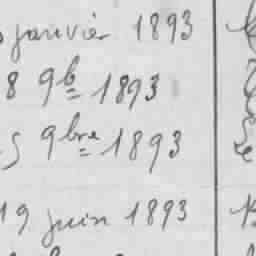 janvier 1893
8 9b 1893
5 9bre 1893
19 juin 1893